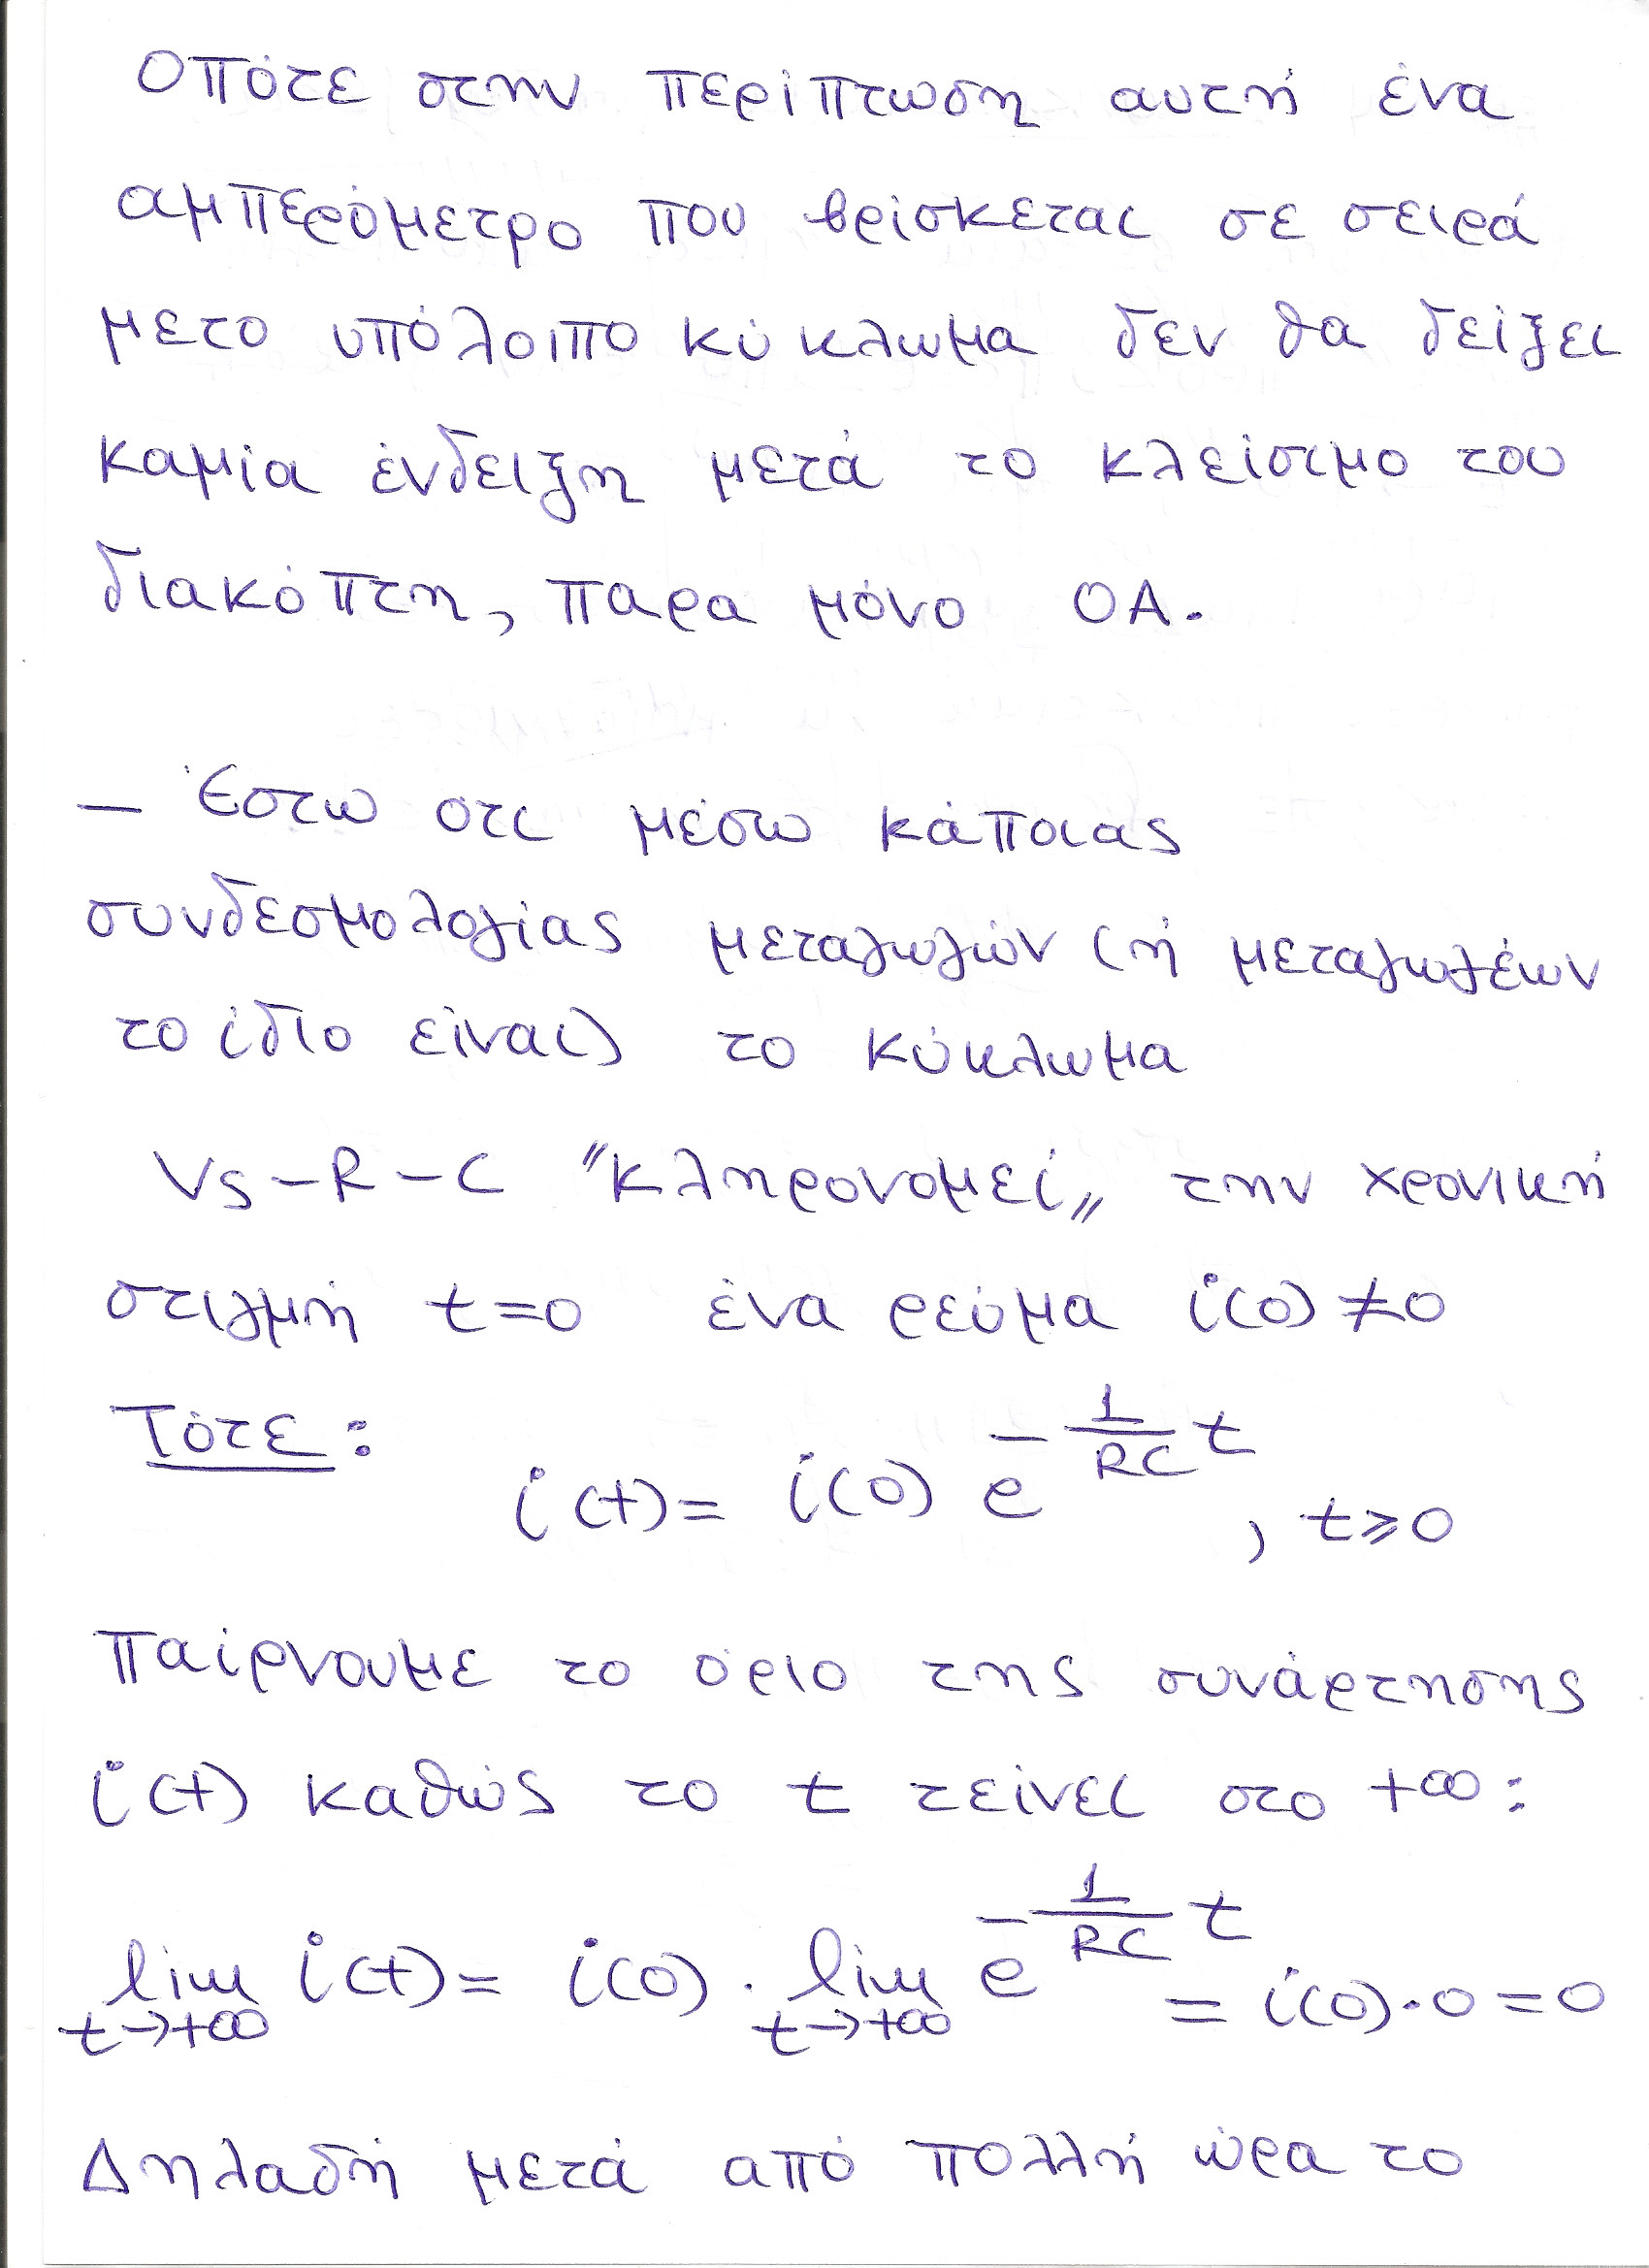 Οπότε στην περίπτωση αυτή ένα
αμπερόμετρο που βρίσκεται σε σειρά
με το υπόλοιπο κύκλωμα δεν θα δείξει
καμία ένδειξη μετά το κλείσιμο του
διακόπτη, παρα μόνο 0A.
— Έστω οτι μέσω κάποιας
συνδεσμολογίας μεταγωγών (ή μεταγωγέων
το ίδιο είναι) το κύκλωμα
Vs-R-C "κληρονομεί" την χρονική
στιγμή t=0 ένα ρεύμα i(0)≠0
Τότε: i(t)= i(0) e^{-\frac{1}{RC}t}, t≥0
Παίρνουμε το όριο της συνάρτησης
i(t) καθώς το t τείνει στο +∞:
lim_{t→+∞} i(t)= i(0)·lim_{t→+∞} e^{-\frac{1}{RC}t} = i(0)·0=0
Δηλαδή μετά από πολλή ώρα το